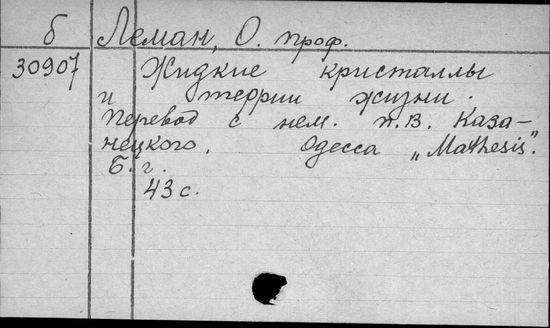 б Леман, О. проф.
30907 Жидкие кристаллы
и теории жизни.
Перевод с нем. П.В. Каза-
нецкого. Одесса „Mathesis".
Б. г.
43 с.